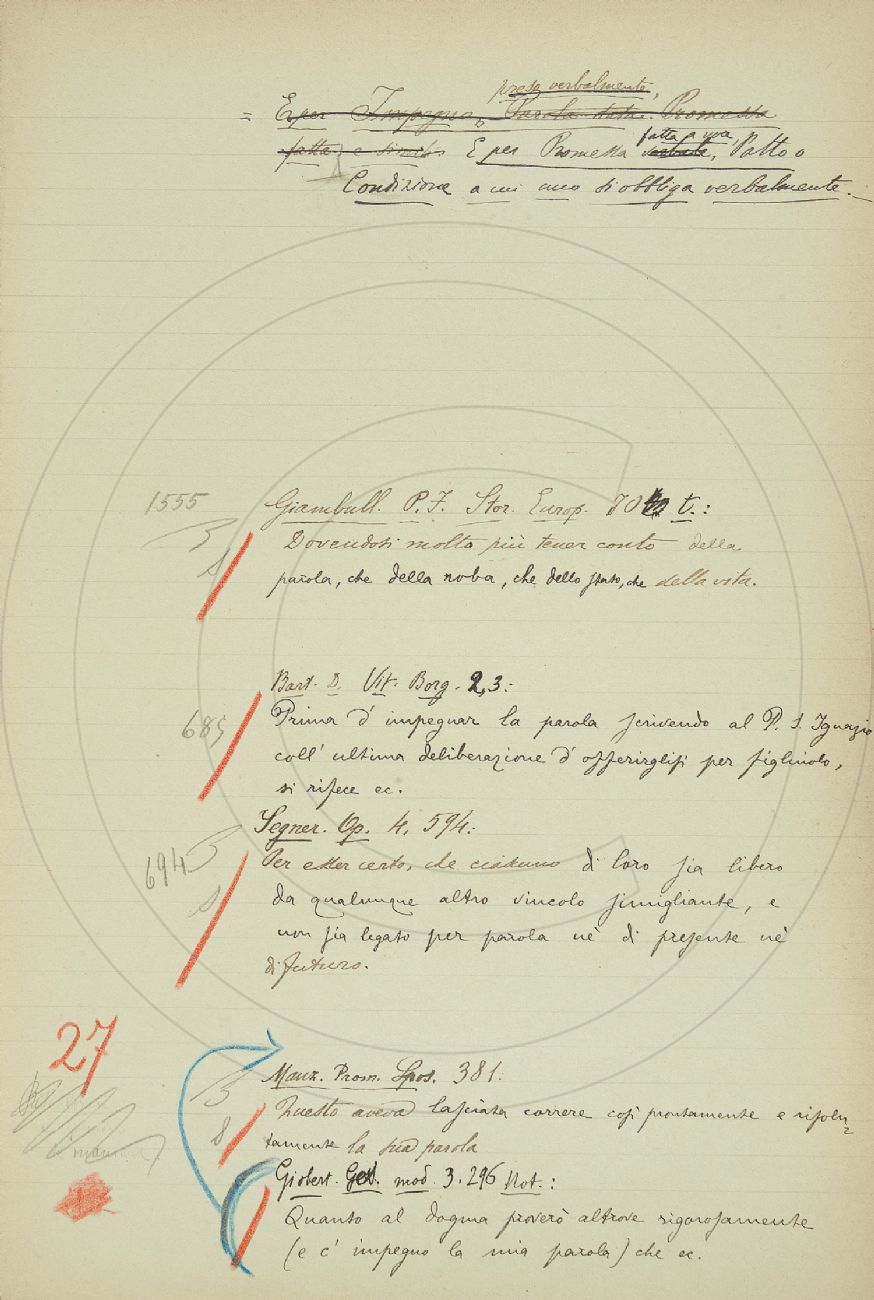 presa verbalmente,
= E per Impegno, Parola data. Promessa
fatta a voce,
fatta e simili E per Promessa verbale, Patto o
Condizione a cui uno si obbliga verbalmente.
1555
Giambull. P. F. Stor. Europ. 70 t.:
Dovendosi molto più tener conto della
parola, che della roba, che dello stato, che della vita.
Bart. D. Vit. Borg. 2,3:
685
Prima d' impegnar la parola scrivendo al P. S. Ignazio
coll' ultima deliberazione d' offerirglisi per figliuolo,
si rifece ec.
Segner. Op. 4, 594:
694
Per esser certo, che ciascuno di loro sia libero
da qualunque altro vincolo simigliante, e
non sia legato per parola nè di presente nè
di futuro.
27
Manz. Prom. Spos. 381:
Questo aveva lasciata correre così prontamente e risolu=
tamente la sua parola
Giobert. Ges. mod. 3. 296 Not.:
Quanto al dogma proverò altrove rigorosamente
(e c' impegno la mia parola) che ec.